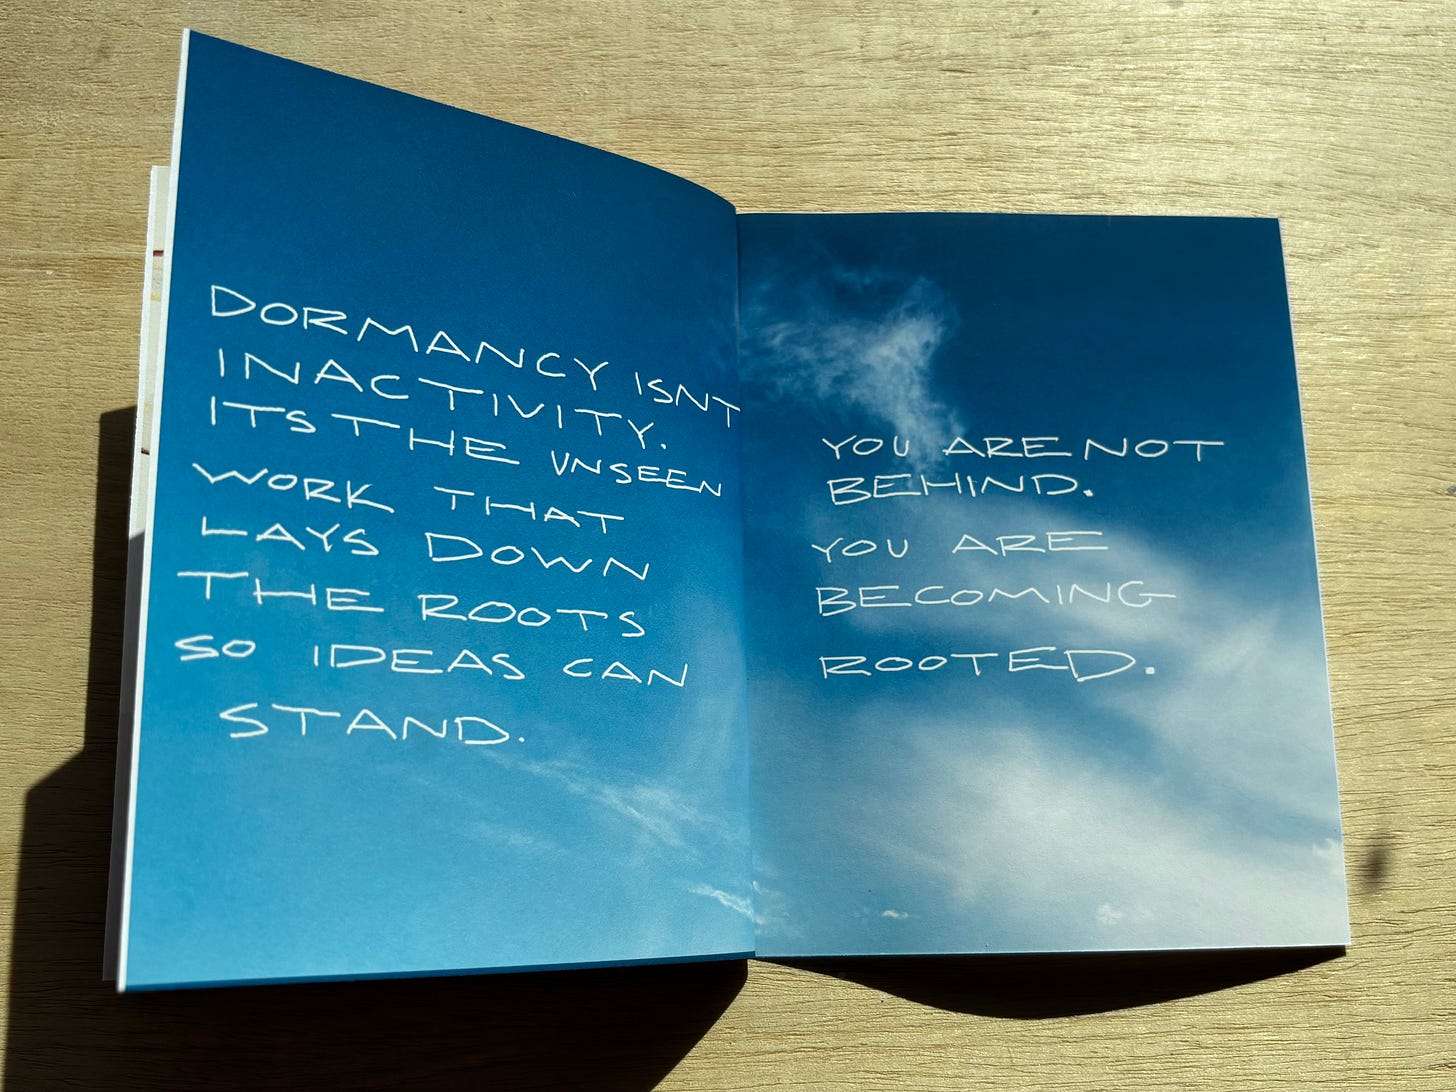 DORMANCY ISNT
INACTIVITY.
ITS THE UNSEEN
WORK THAT
LAYS DOWN
THE ROOTS
SO IDEAS CAN
STAND.
YOU ARE NOT
BEHIND.
YOU ARE
BECOMING
ROOTED.